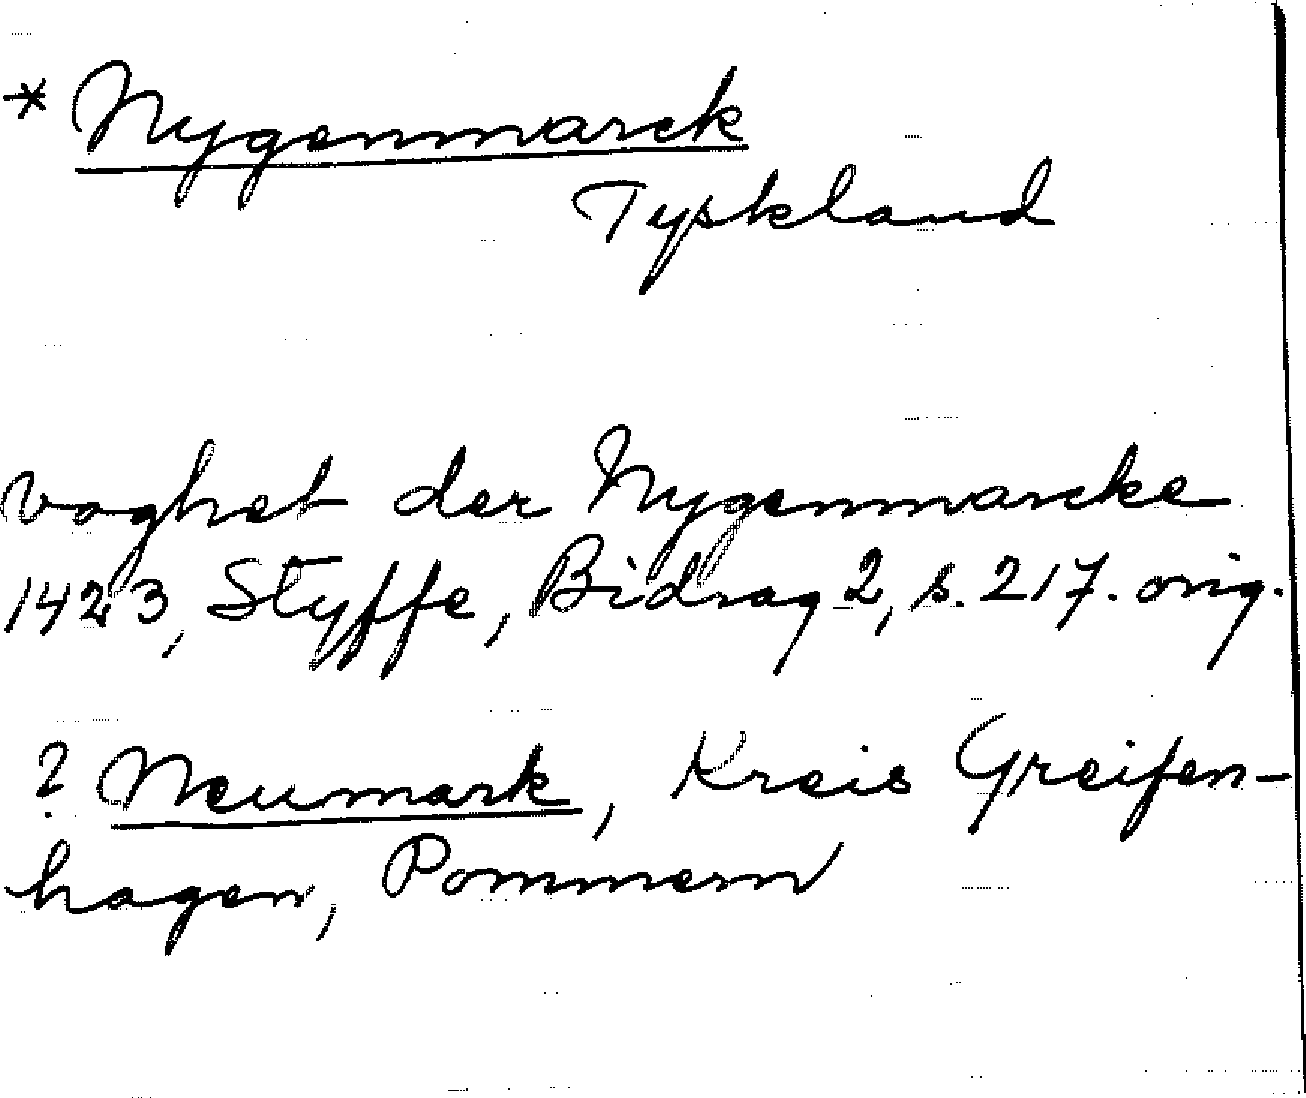 * Nygenmarck
Tyskland
voghet der Nygenmarcke
1423, Styffe, Bidrag 2, s. 217. orig.
? Neumark, Kreis Greifen-
hagen, Pommern